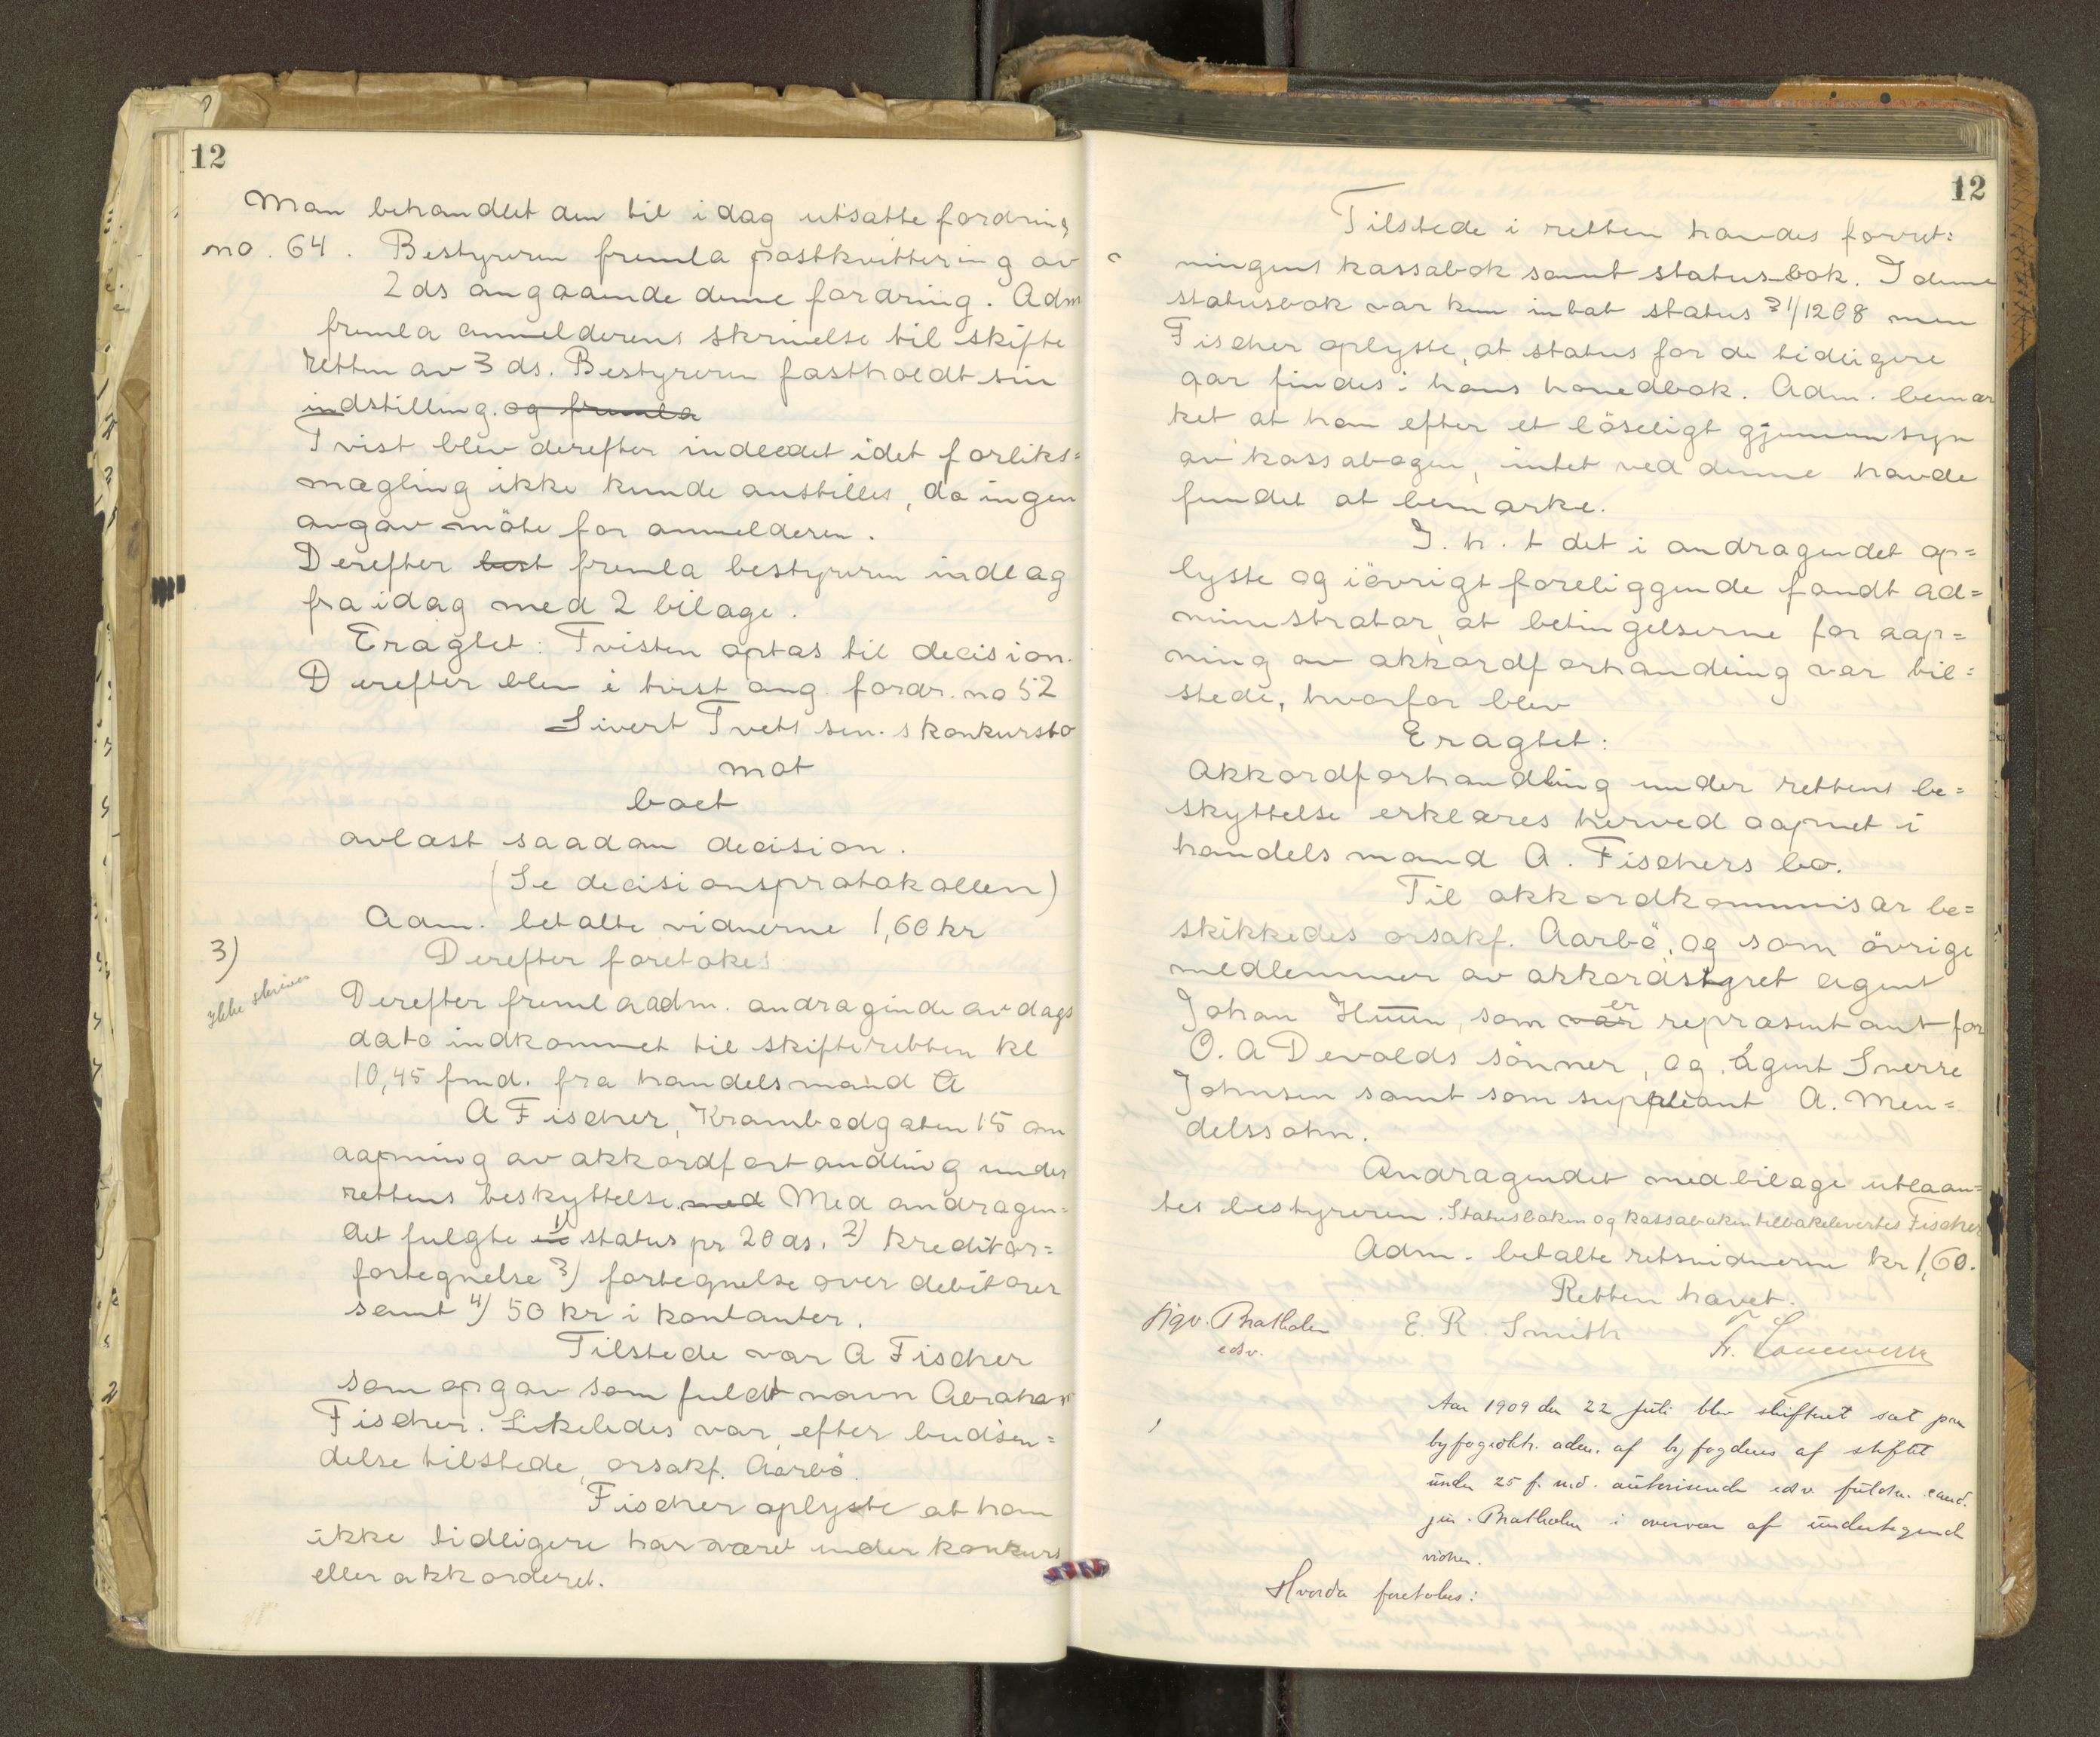 12
Man behandlet den til idag utsatte fordring
no. 64. Bestyreren fremla postkvittering av
2 ds angaaende denne fordring. Adm
fremla anmelderens skrivelse til skifte
retten av 3 ds. Bestyreren fastholdt sin
indstilling. og fremla
Tvist blev derefter indledet idet forliks=
mægling ikke kunde anstilles, da ingen
avgav möte for anmelderen.
Derefter best fremla bestyreren indlag
fra idag med 2 bilage.
Eragtet: Tvisten optas til decision.
Derefter blev i tvist ang. fordr. no 52
Sivert Tvets sen.s konkursbo
mot
boet
avlæst saadan decision.
(Se decisionsprotokollen)
Adm. betalte vidnerne 1,60 kr
3)
Derefter foretokes
Ikke skrives
Derefter fremla adm. andragende av dags
dato indkommet til skifteretten kl
10,45 fmd. fra handelsmand A
A Fischer, Krambodgaten 15 om
aapning av akkordforhandling under
rettens beskyttelse med Med andragen=
det fulgte en 1) status pr 20 ds. 2) kreditor=
fortegnelse 3) fortegnelse over debitorer
samt 4) 50 kr i kontanter.
Tilstede var A Fischer
som opgav som fuldt navn Abraham
Fischer. Likeledes var efter budsen=
delse tilstede, orsakf. Aarbö.
Fischer oplyste at han
ikke tidligere har været under konkurs
eller akkorderet.
12
Tilstede i retten havdes forret=
ningens kassabok samt status-bok. I denne
statusbok var kun intat status 31/1208 men
Fischer oplyste, at status for de tidligere
aar findes i hans hovedbok. Adm. bemær
ket at han efter et löseligt gjennemsyn
av kassabogen, intet ved denne havde
fundet at bemærke.
I. h. t det i andragendet op=
lyste og iövrigt foreliggende fandt ad=
ministrator, at betingelserne for aap=
ning av akkordforhandling var til=
stede, hvorfor blev
Eragtet:
Akkordforhandling under rettens be=
skyttelse erklæres herved aapnet i
handelsmand A. Fischers bo.
Til akkordkommisær be=
skikkedes orsakf. Aarbö, og som övrige
medlemmer av akkordstyret agent
Johan Huun, som var er repræsentant for
O. A Devolds sönner, og Agent Sverre
Johnsen samt som suppleant A. Men=
delssohn.
Andragendet med bilage utlaan=
tes bestyreren. Statusboken og kassaboken tilbakelevertes Fischer
Adm. betalte retsvidnerne kr 1,60.
Retten hævet.
Sigv. Bratholm E. R. Smith
edsv.
Aar 1909 den 22 juli blev skifteret sat paa
byfogedkt. adm. af byfogdens af stiftet
under 25 f. md. autoriserede edsv. fuldm. cand.
jur. Bratholm i overvær af undertegnede
vidner.
Hvorda foretokes: